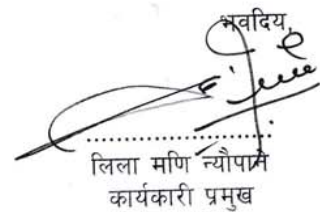 भवदिय,
....................
लिला मणि न्यौपाने
कार्यकारी प्रमुख